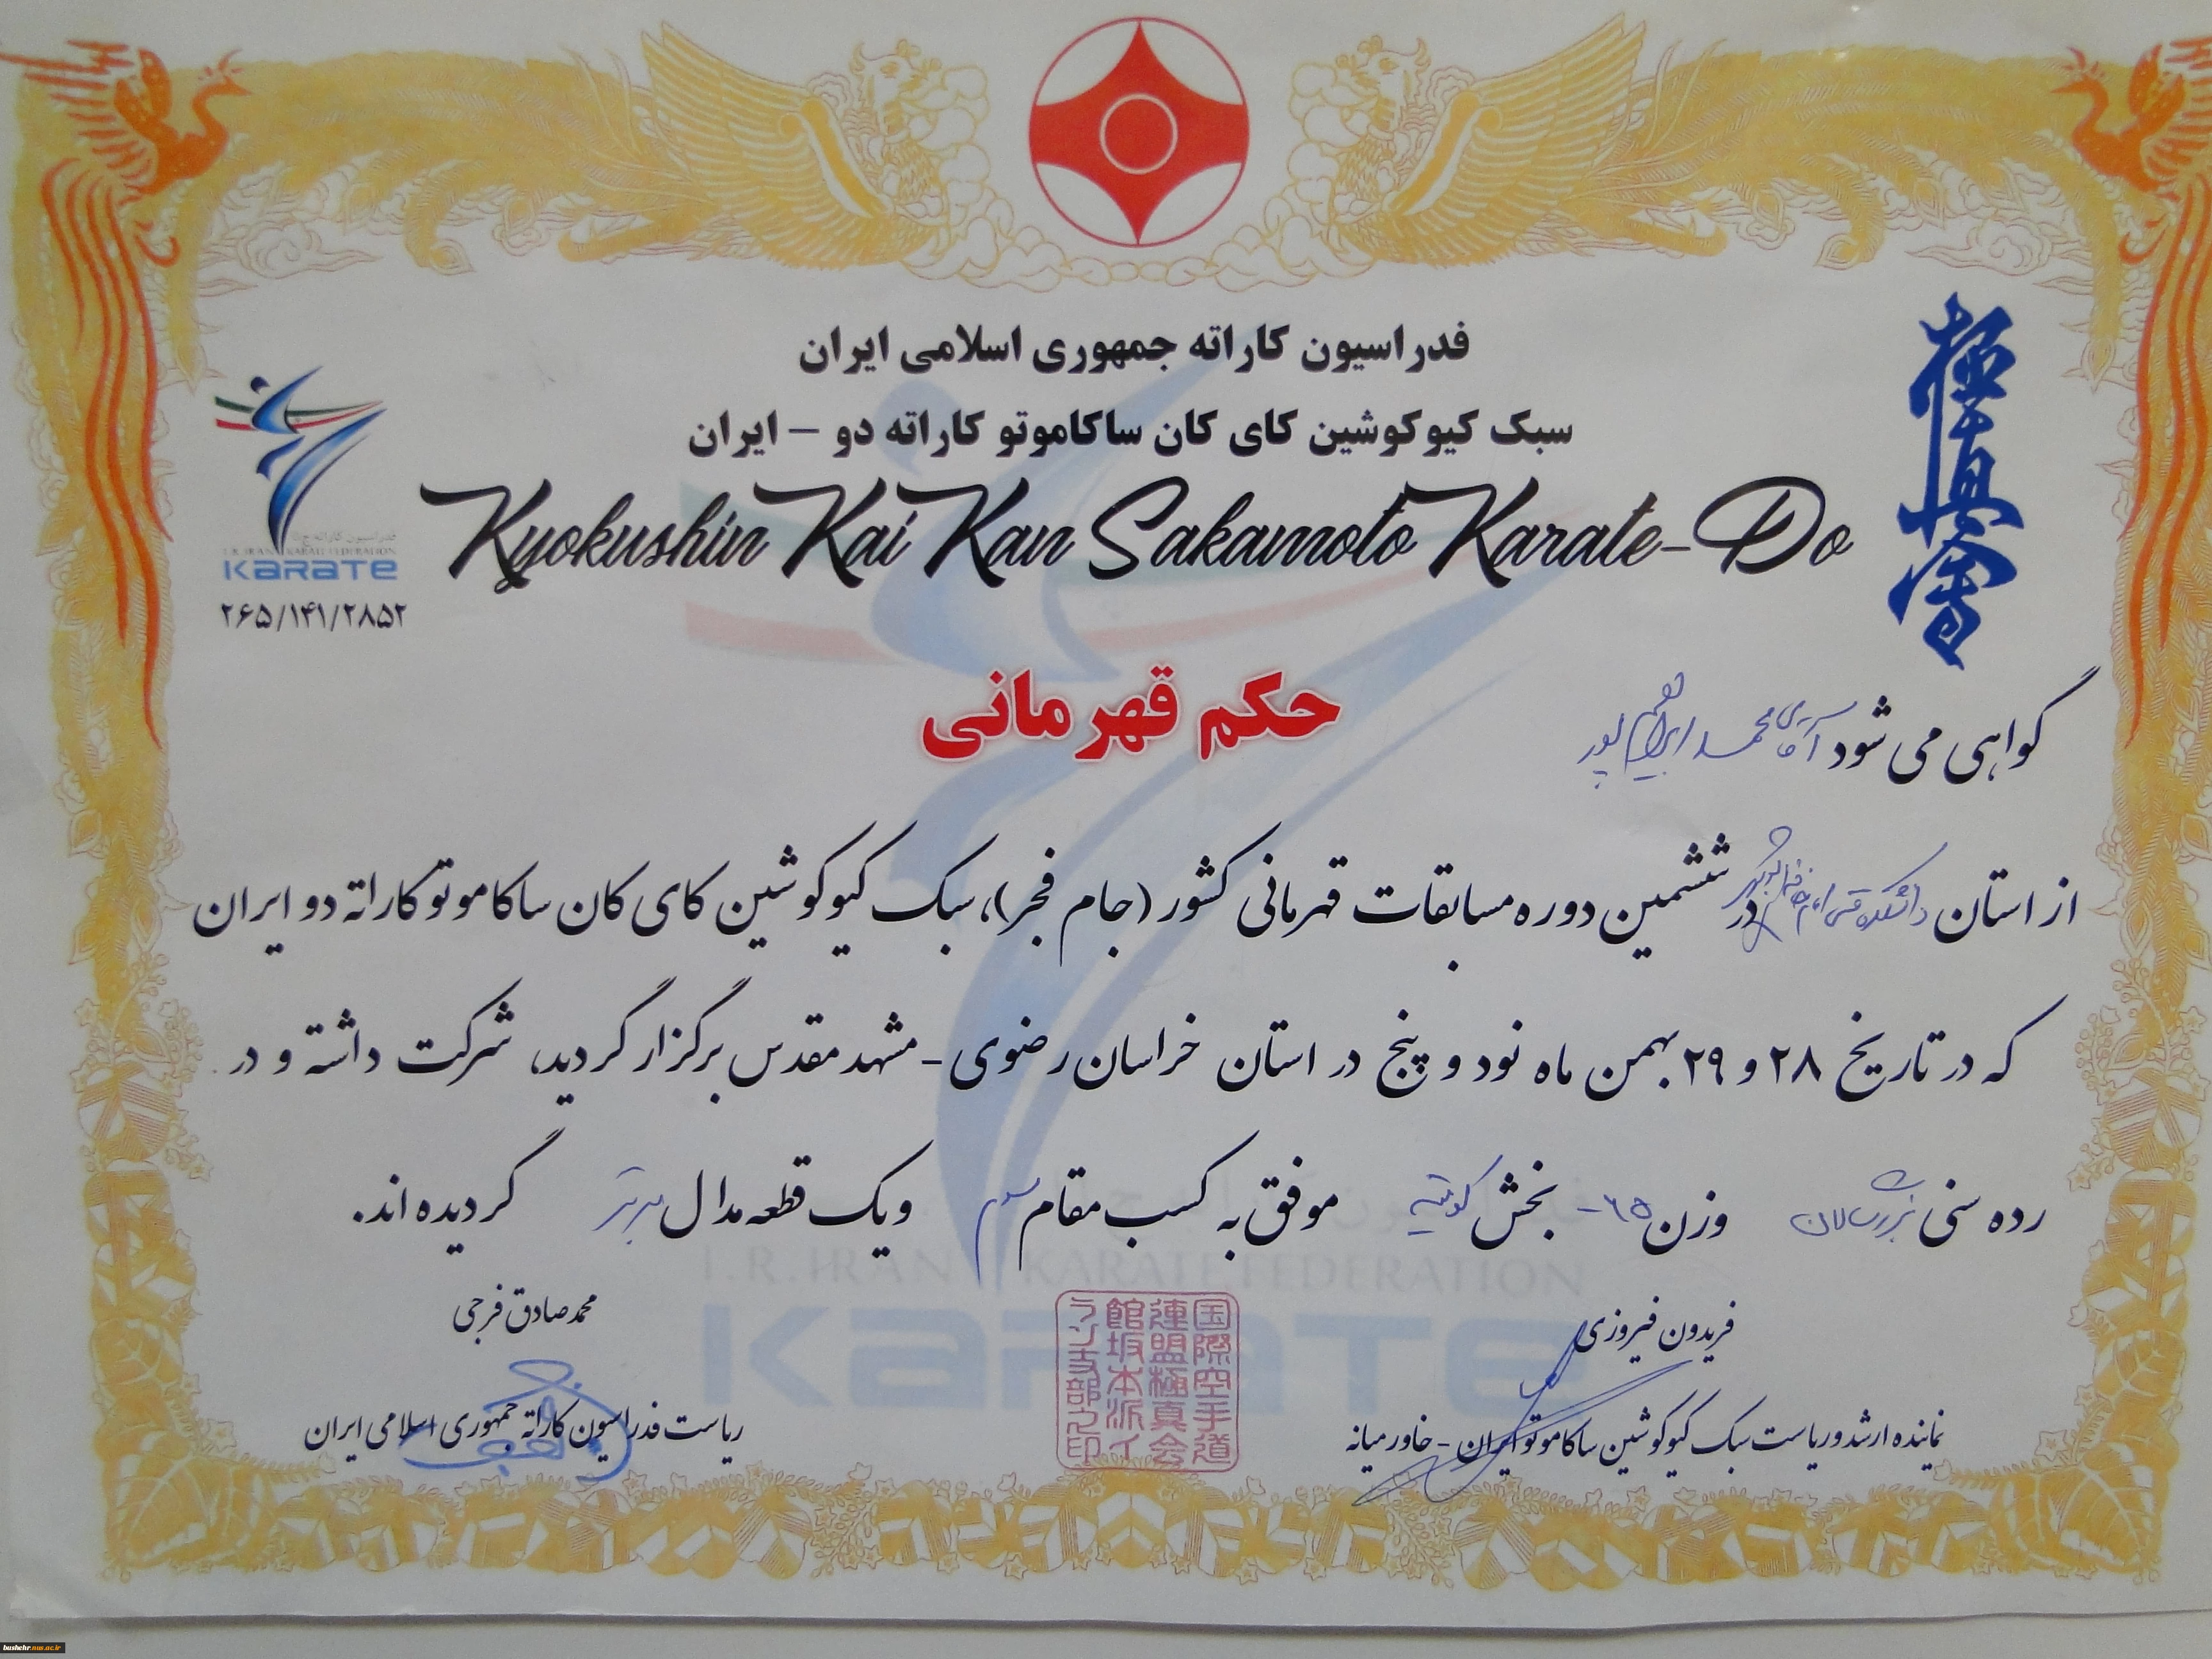 فدراسیون کاراته جمهوری اسلامی ایران
سبک کیوکوشین کای کان ساکاموتو کاراته دو – ایران
Kyokushin Kai Kan Sakamoto Karate-Do
極真会
فدراسیون کاراته ج.ا.ا
I.R.IRAN KARATE FEDERATION
KARATE
۲۶۵/۱۴۱/۲۸۵۲
حکم قهرمانی
گواهی می شود آقای محمد ابراهیم پور
از استان دانشکده فنی در ششمین دوره مسابقات قهرمانی کشور (جام فجر)، سبک کیوکوشین کای کان ساکاموتو کاراته دو ایران
که در تاریخ ۲۸ و ۲۹ بهمن ماه نود و پنج در استان خراسان رضوی - مشهد مقدس برگزار گردید، شرکت داشته و در
رده سنی بزرگسالان وزن ۶۵- بخش کومیته موفق به کسب مقام سوم و یک قطعه مدال برنز گردیده اند.
I.R.IRAN KARATE FEDERATION
KARATE
فریدون فیروزی
نماینده ارشد و ریاست سبک کیوکوشین ساکاموتو ایران - خاورمیانه
国際空手道
連盟極真会
館坂本派イ
ラン支部之印
محمد صادق فرجی
ریاست فدراسیون کاراته جمهوری اسلامی ایران
bushehr.nus.ac.ir